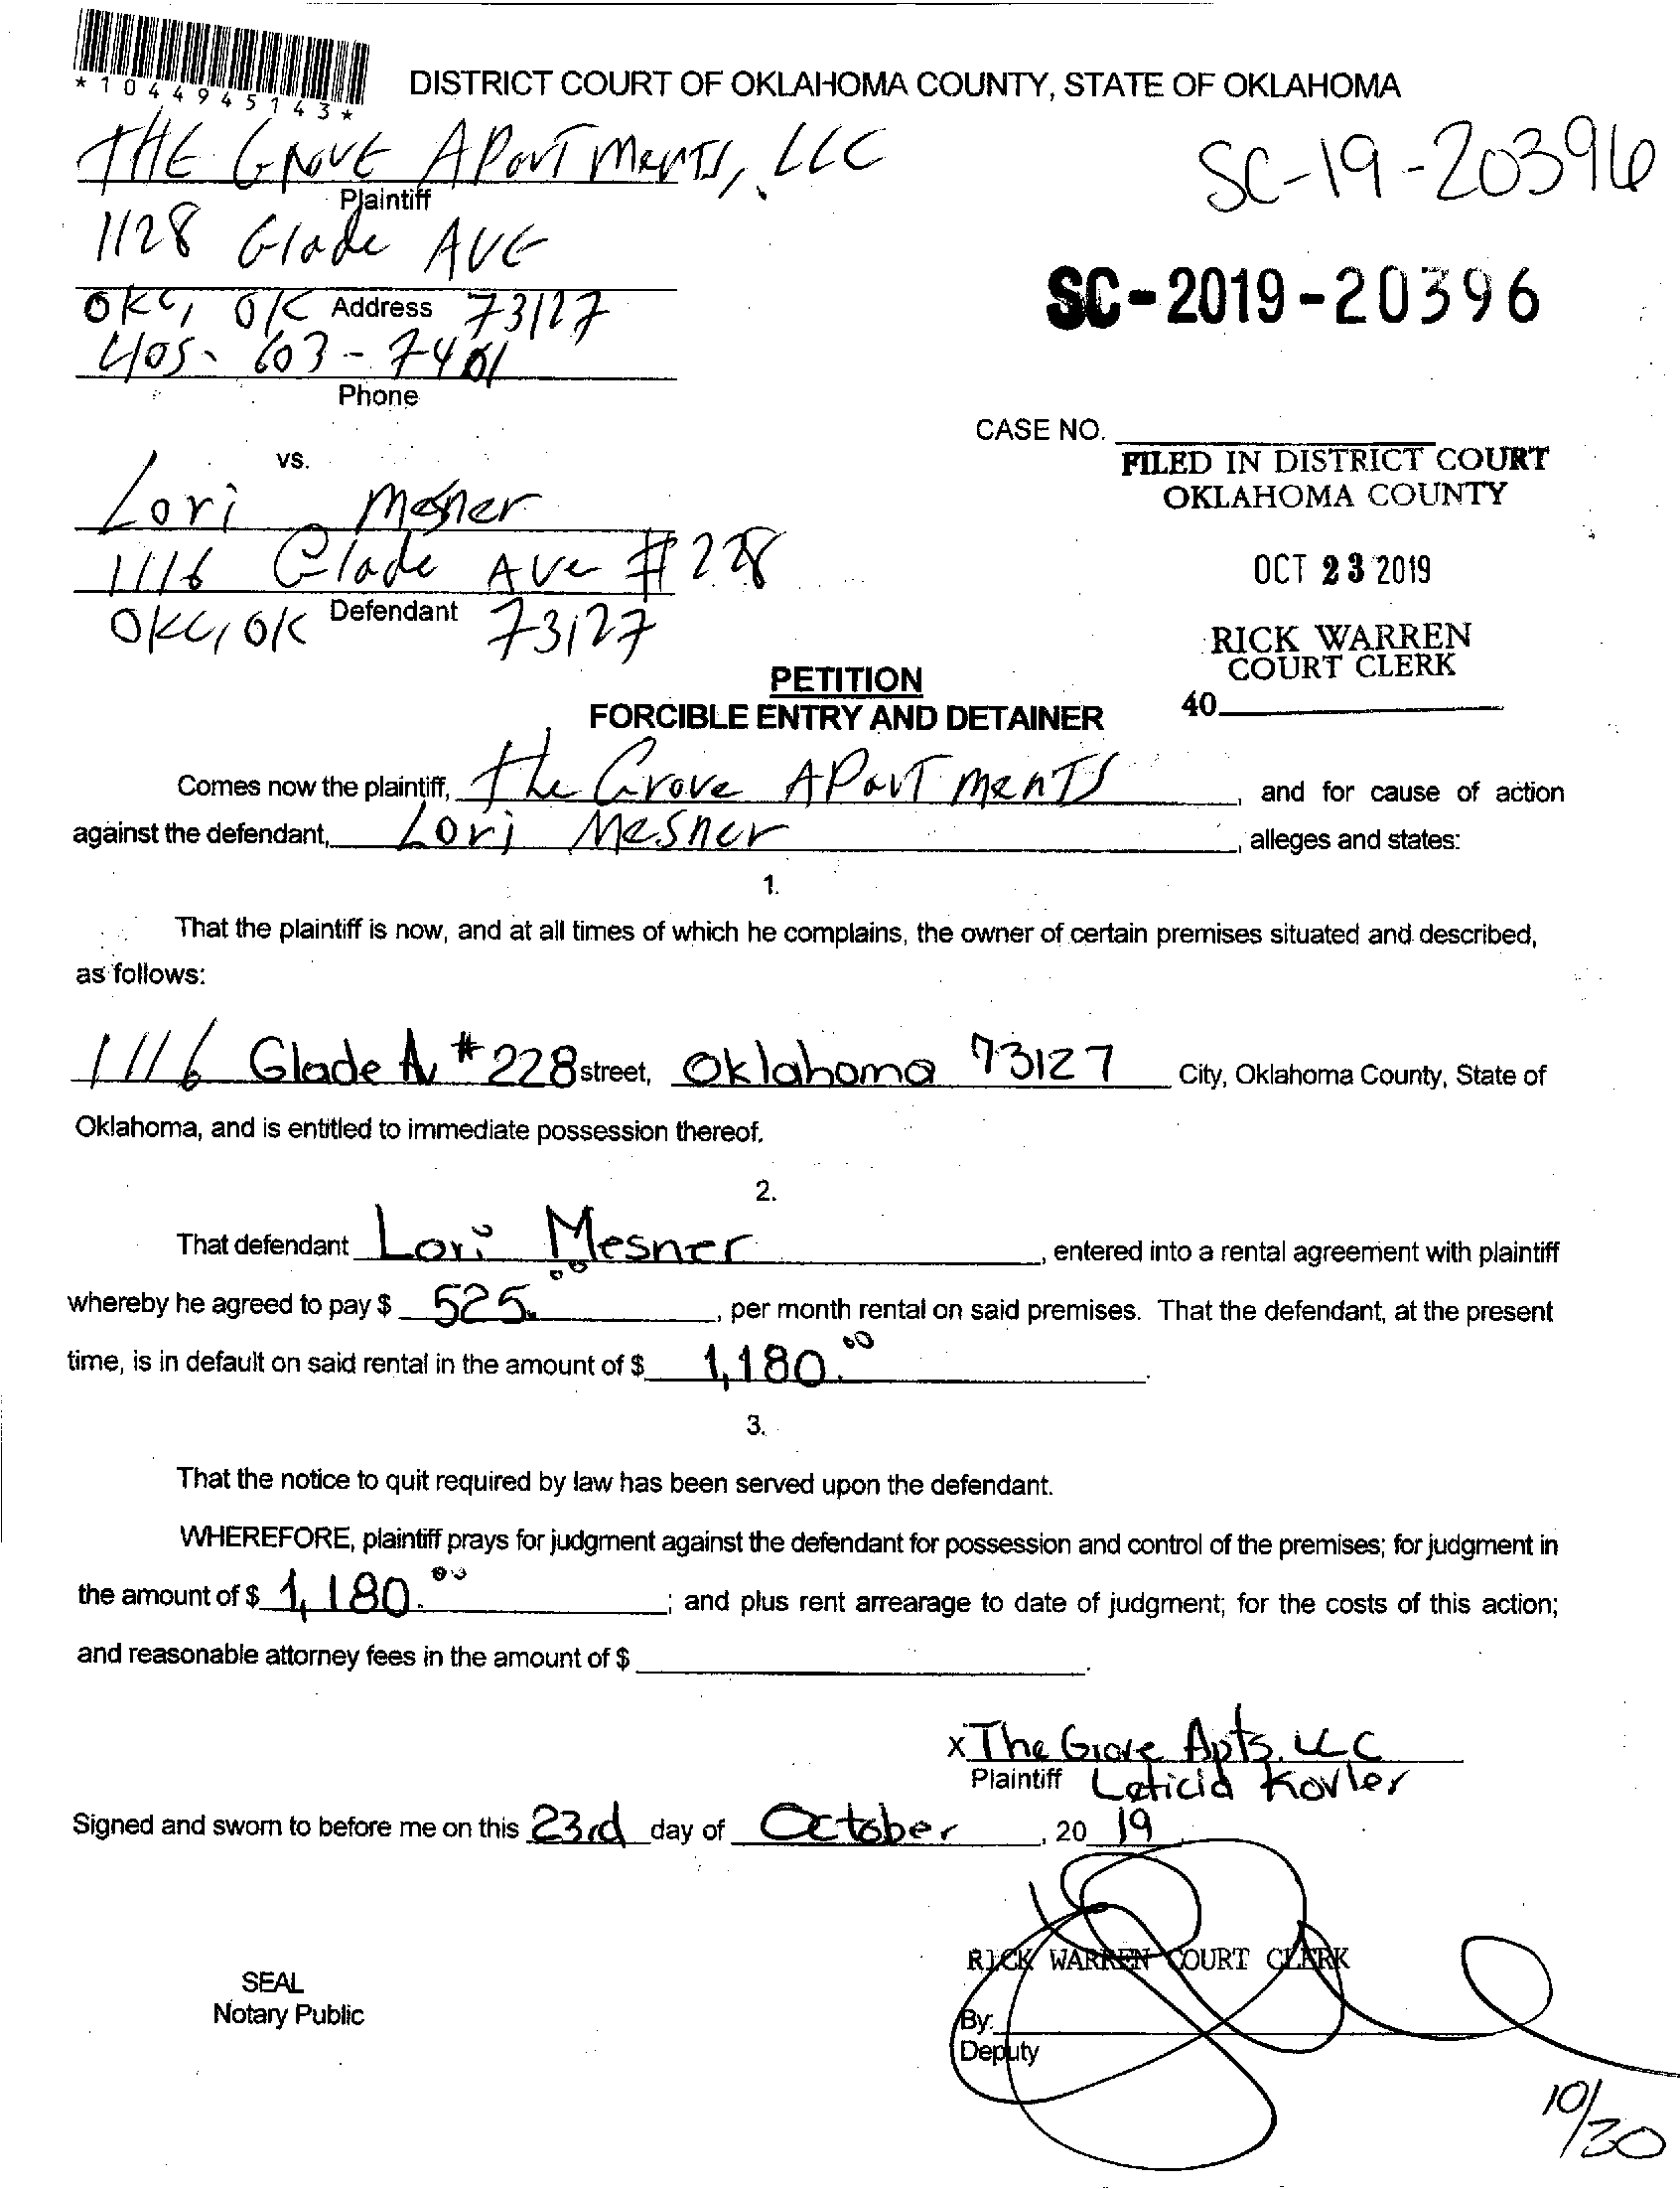 *1044945143*
DISTRICT COURT OF OKLAHOMA COUNTY, STATE OF OKLAHOMA
THE GROVE APartments, LLC
SC-19-20396
Plaintiff
1128 Glade AVE
SC-2019-20396
OKC, OK Address 73127
405-603-7401
Phone
CASE NO.
vs.
FILED IN DISTRICT COURT
OKLAHOMA COUNTY
Lori Mesner
1116 Glade Ave #228
OCT 23 2019
OKC, OK Defendant 73127
RICK WARREN
COURT CLERK
PETITION
40
FORCIBLE ENTRY AND DETAINER
Comes now the plaintiff, the Grove APartments, and for cause of action
against the defendant, Lori Mesner, alleges and states:
1.
That the plaintiff is now, and at all times of which he complains, the owner of certain premises situated and described,
as follows:
1116 Glade Av #228 street, Oklahoma 73127 City, Oklahoma County, State of
Oklahoma, and is entitled to immediate possession thereof.
2.
That defendant Lori Mesner, entered into a rental agreement with plaintiff
whereby he agreed to pay $ 525.00, per month rental on said premises. That the defendant, at the present
time, is in default on said rental in the amount of $ 1,180.00.
3.
That the notice to quit required by law has been served upon the defendant.
WHEREFORE, plaintiff prays for judgment against the defendant for possession and control of the premises; for judgment in
the amount of $ 1,180.00; and plus rent arrearage to date of judgment; for the costs of this action;
and reasonable attorney fees in the amount of $ .
X The Grove Apts. LLC
Plaintiff Leticia Kovler
Signed and sworn to before me on this 23rd day of October, 20 19.
RICK WARREN COURT CLERK
SEAL
Notary Public
By:
Deputy
10/30